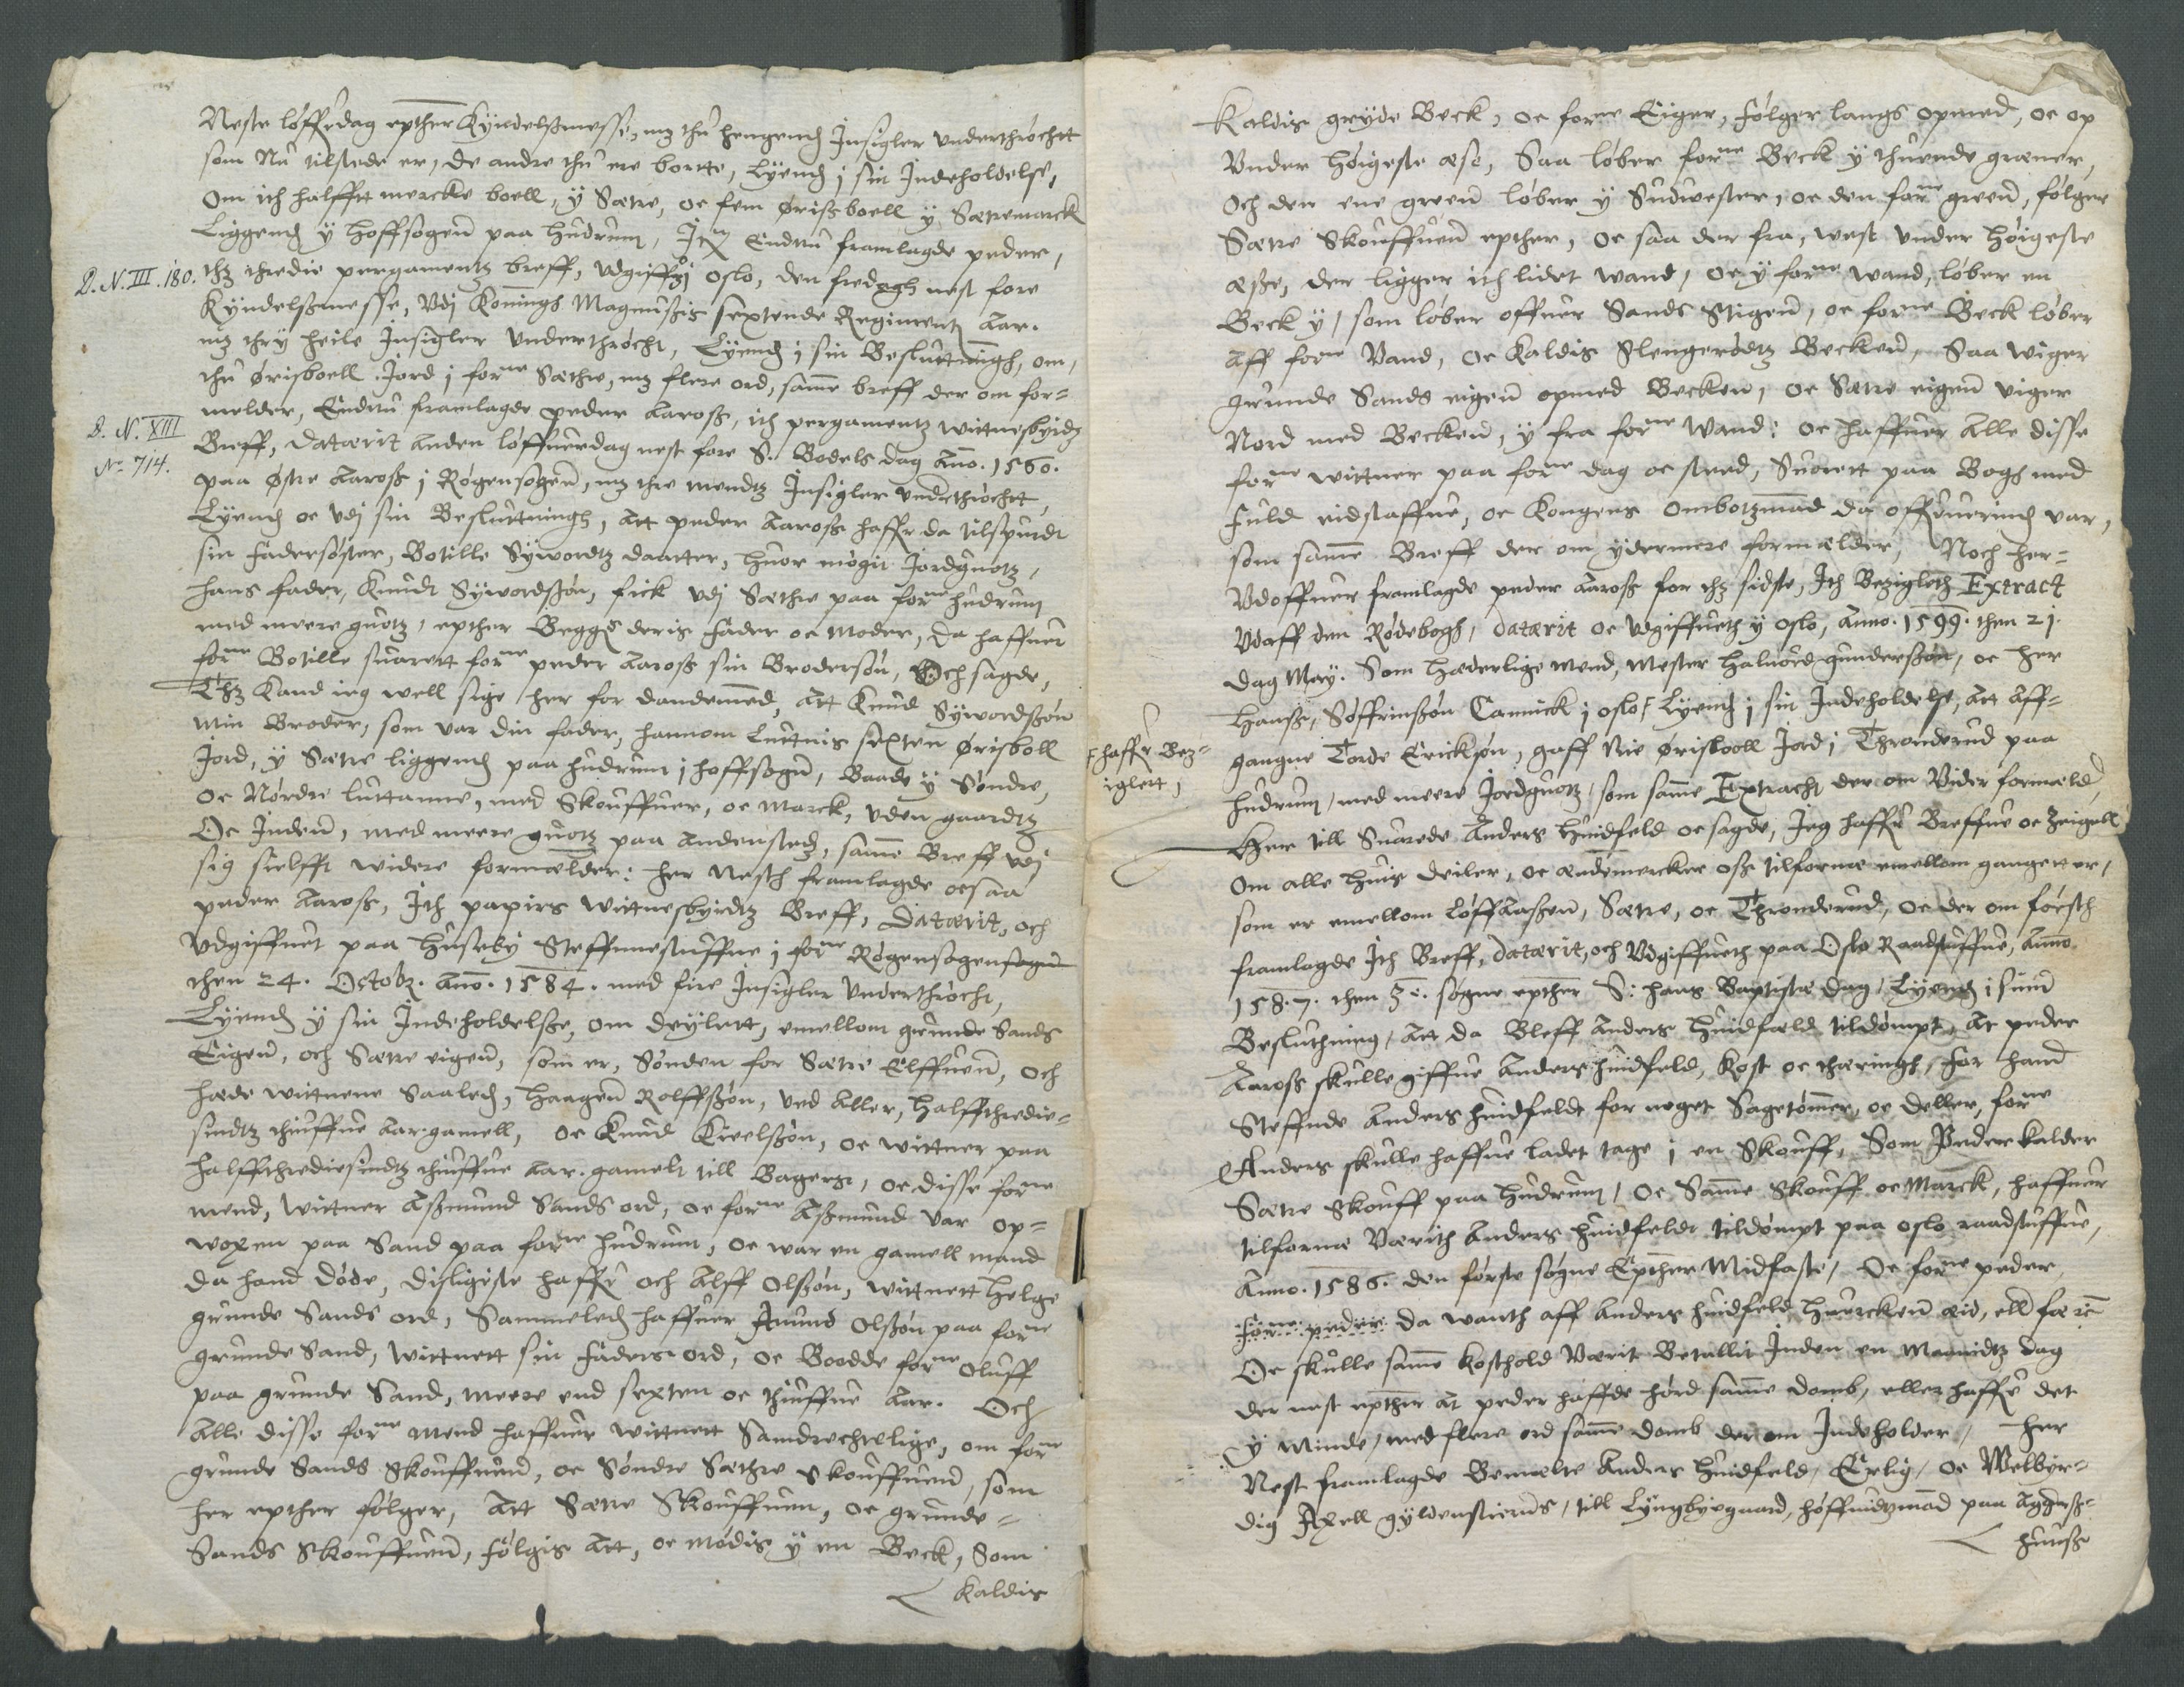 Neste løffverdag epther Kyndelsmesse, mz thu hengend Insigler vnderthrocht
som Nu tilstede er, de andre thu ere bortte, Lyend j sin Indeholdelse,
Om ith halfft mercke boell, y Sætre, oc fem Ørisboell y Sætremarck
Liggend y Hoffsogenn paa Hudrum, Item Endnu framlagde peder,
D. N. III. 180.
thz thredie pergamentz breff, vdgiffuit j Oslo, den fredagh nest fore
Kyndelsmesse, vdj Konnings Magnusis sextende Regimentz Aar.
mz thry heile Insigler vnderthrocht, Lyend j sin Besluttningh, om,
thu ørisboell Jord j forne Sæthre, mz flere ord, samme breff der om for=
melder, Endnu framlagde peder Aaross, ith pergamentz wittnesbyrdz
D. N. XIII
No 714.
Breff, Datærit anden løffuerdag nest fore S. Bodels dag Anno. 1560.
paa Østre Aaross j Røgensogenn, mz thre mendtz Insigler vnderthrocht,
Lyend oc vdj sin Besluttningh, Att peder Aaross haffr da tilspurdt
sin fadersøster, Botille Sywordtz daatter, huor møgit Jordguotz,
hans fader, Knudt Sywordssøn, fick vdj Sæthre paa forne Hudrum
med meere guotz, epther Begges deris fader oc Moder, da haffuer
forne Botille suarett forne peder Aaross sin Brodersøn, Och sagde,
Thz kand ieg well sige her for dandemend, Att Knud Sywordssøn
min Broder, som var din fader, hannom Luttnis sexten ørisboll
Jord, y Sætre liggend paa Hudrum j Hoffsogn, Baade y Søndre,
oc Nørdre luttanne, med Skouffuer, oc Marck, vden gaardtz
Oc Indenn, med meere guotz paa andensteds, samme Breff vdj
sig sielfft widere formelder: Her Nesth framlagde ocsaa
peder Aaross, Ith papirs Wittnesbyrdtz Breff, Datærit, och
vdgiffuet paa Huseby Steffnnestuffue j forne Røgensogen
then 24. Octobr. Anno. 1584. med fire Insigler vnderthrocht,
Lyend y sin Indeholdelsse, om deylett, emellom grunde Sands
Eigenn, och Sætre eigenn, som er, Sønden for Sætre Elffuenn, och
hæde wittnene Saaled, Haagenn Rolffssøn, ved Aller, halffthredie=
sindtz thiuffue Aar gamell, oc Knud Kielssøn, oc wittner paa
halffthrediesindtz thiuffue Aar gamelt till Bagerst, oc disse forne
mend, wittner Assmund Sands ord, oc forne Assmund var op=
woxen paa Sand paa forne Hudrum, oc war en gamell mand
da hand døde, disligiste haffr och Alff Olssøn, wittnett Helge
grunde Sands ord, Sammeled haffuer Amund Olssøn paa forne
grunde Sand, wittnett sin faders ord, oc Boedde forne Oluff
paa grunde Sand, meere end sexten oc thiuffue Aar. Och
Alle disse forne mend haffuer wittnett Samdrechtelige, om forne
grunde Sands Skouffuenn, oc Søndre Sæthre Skouffuenn, som
her epther følger, Att Sætre Skouffuen, oc grunde=
Sands Skouffuenn, følgis Att, oc mødis y en Beck, Som
Kaldis
Kaldis gryde Beck, oc forne Eiger, følger langs opmed, oc op
Vnder høigeste ase, Saa løber forne Beck y thuende græner,
Och den ene greenn løber y Sudwester, oc den forne greenn, følger
Sætre Skouffuenn epther, oc saa der fra, west under høigeste
asse, der ligger ith lidet wand, oc y forne wand, løber en
Beck y, som løber offuer Sands Stigenn, oc forne Beck løber
Aff forne Vand, oc Kaldis Slengerødtz Beckenn, Saa wiger
grunde Sands eigenn opmed Beckenn, oc Sætre eigenn viger
Nord med Beckenn, y fra forne Wand: oc haffuer Alle disse
forne wittner paa forne dag oc sted, Suorett paa Bogh med
Fuld eidstaffue, oc Kongens ombotzmand da offueruerind var,
som samme Breff der om ydermere formelder, Noch her=
Vdoffuer framlagde peder Aaross for thz sidste, Ith Bezigleth Extract
Vdaff den Rødebogh, Datærit oc vdgiffueth y Oslo, Anno. 1599. then 21.
Dag May. Som Hæderlige mend, Mester Haluord gunderssøn, oc Her
Hanss, Søffrinssøn Canick j Oslo, Lyend j sin Indeholdelse, Att Aff=
haffr Bez=
iglett,
gangne Torde Ericksøn, gaff Nie Ørisboell Jord j Thronderud paa
Hudrum, med meere Jordguotz, som samme Extracht der om vider formeld,
Her till Suarede Anders Huidfeld oc sagde, Jeg haffr Breffue oc Zeigell
Om alle huis deiler, oc endemercker oss tilforne emellom gangett er,
som er emellom Løffaassenn, Sætre, oc Thronderud, oc der om førsth
framlagde Ith Breff, Datærit, och Vdgiffueth paa Oslo Raadstuffue, Anno.
1587. then 3e. søgne epther S: Hans Baptistæ dag, Lyend i sinn
Besluthning, Att da Bleff Anders Huidfæld tildømpt, At peder
Aaross skulle giffue Anders Huidfeld, Kost oc thæringh, for hand
Steffnde Anders Huidfeldt for noget Sagetømmer, oc deller, forne
Anders skulle haffue ladet tage j en Skouff, Som Peder Kalder
Sætre Skouff paa Hudrum, Oc Samme Skouff oc Marck, haffuer
tilforne Værith Anders Huidfeldt tildømpt paa Oslo raadstuffue,
Anno. 1586. den første søgne Epther Midfaste, Oc forne peder
forne peder da wanth aff Anders Huidfeld huercken eid, ell
Oc skulle samme Kosthold Værit Betallit Inden en Maanidtz dag
der nest epther at peder haffde hørd samme domb, eller haffue det
y minde, med flere ord samme domb der om Indeholder, Her
Nest framlagde Bemelte Anders Huidfeld, Erlig, oc Welbyr=
dig Axell gyldenstierns, till Lyngbyegaard, høffuidtzmand paa Aggerss=
huuss